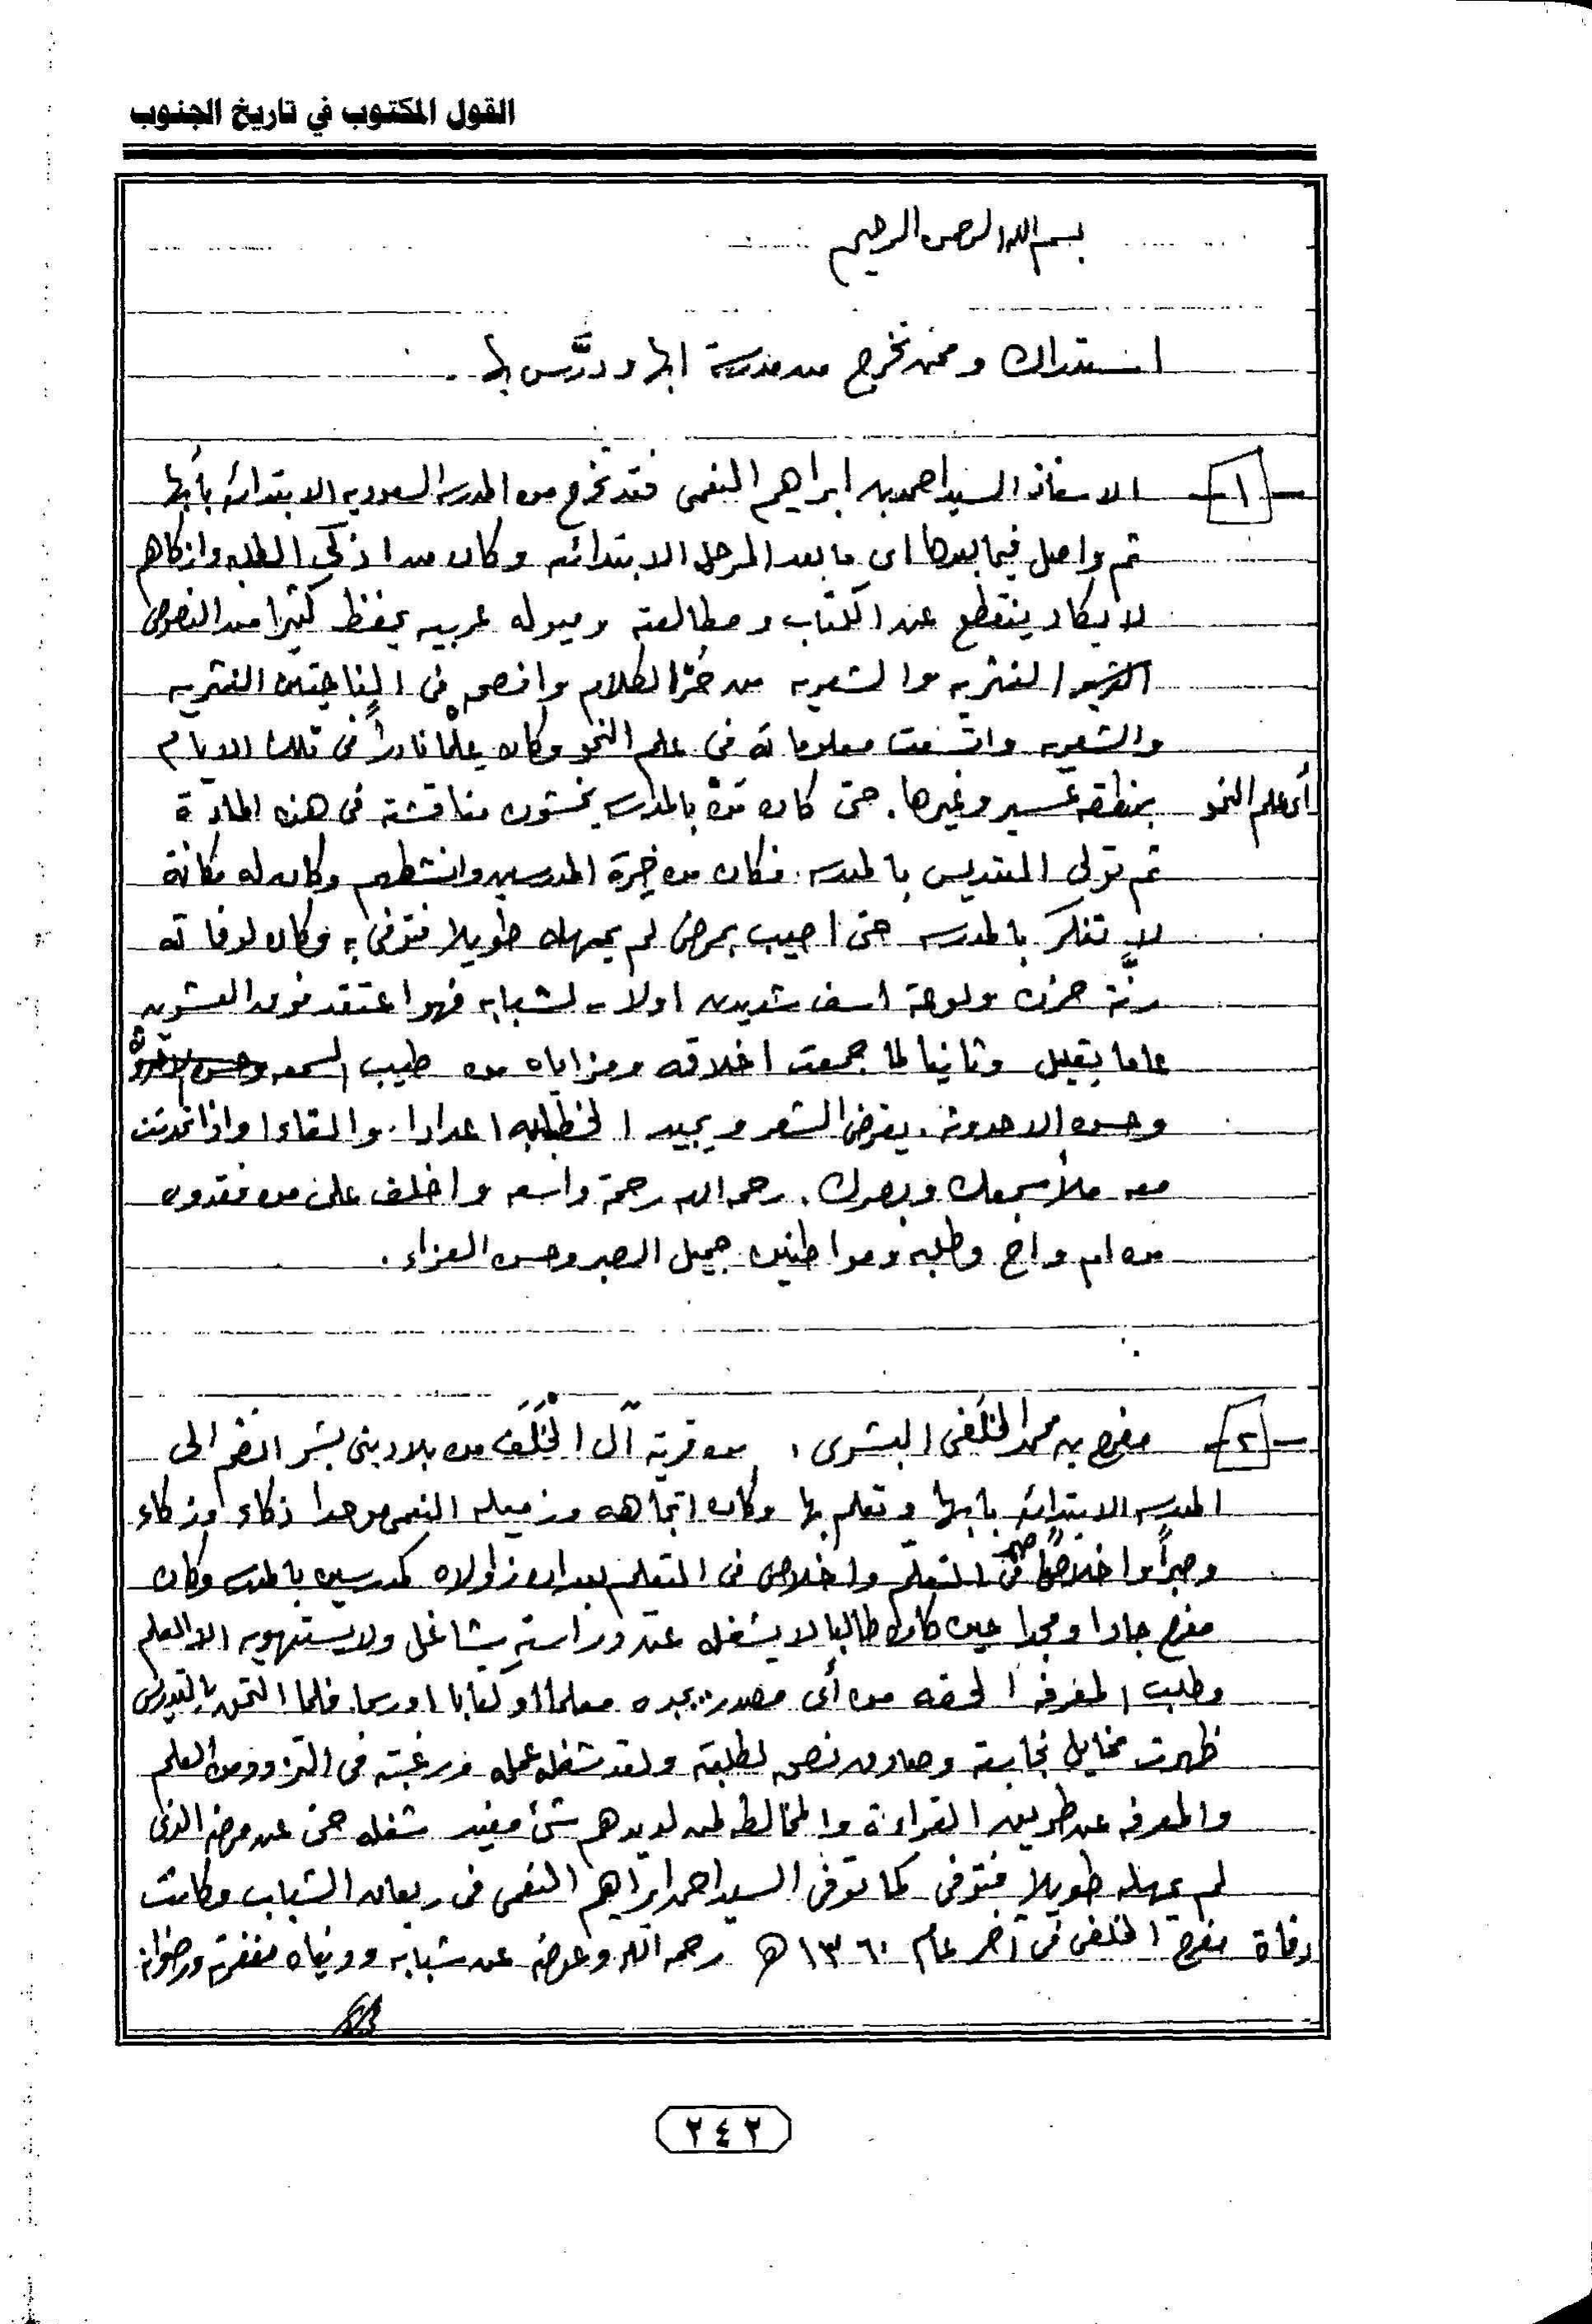 القول المكتوب في تاريخ الجنوب
بسم الله الرحمن الرحيم
استدراك وممن تخرج من مدرسة ابها ودرَّس بها .
-١- الاستاذ السيد احمد بن ابراهيم النعمى فقد تخرج من المدرسه السعوديه الابتدائيه بأبها
ثم واصل فيما بعدها اى ما بعد المرحله الابتدائيه وكان من اذكى الطلبه وازكاهم
لا يكاد ينقطع عن الكتاب ومطالعته وميوله عربيه يحفظ كثيرا من النصوص
النثريه والشعريه من حُرّ الكلام وافصحه فى الناحيتين النثريه
والشعريه واتسعت معلوماته فى علم النحو وكان علمًا نادرًا فى تلك الايام
أى علم النحو بمنطقه عسير وغيرها . حتى كان من بالمدرسه يخشون مناقشته فى هذه المادة
ثم تولى التدريس بالمدرسه . فكان من خيرة المدرسين وانشطهم وكان له مكانة
لا تنكر بالمدرسه حتى اصيب بمرض لم يمهله طويلا فتوفى به وكان لوفاته
رنَّة حزن ولوعة اسف شديدين اولا لشبابه فهو اعتقد فوق العشرين
عاما بقليل وثانيا لما جمعت اخلاقه ومزاياه من طيب السمعه
وحسن الاحدوثه . يقرض الشعر ويجيد الخطابه اعدادا . والقاءا واذا تحدثت
معه ملأ سمعك وبصرك . رحمه الله رحمة واسعه واخلف على من فقدوه
من ام واخ وطلبه ومواطنين جميل الصبر وحسن العزاء .
-٢- مفرح بن محمد الخَلَفى البشرى ، من قرية آل الخَلَف من بلاد بنى بشر انضم الى
المدرسه الابتدائيه بابها وتعلم بها وكان اتجاهه وزميله النعمى موحدا ذكاء وزكاء
وصبرًا واخلاصًا فى التعلّم واخلاص فى التعليم بعد ان زاولاه كمدرسين بالمدرسه وكان
مفرح جادا ومجدا حين كان طالبا لا يشغله عن دراسته شاغل ولا يستهويه الا العلم
وطلب المعرفه الحقه من أى مصدر يجده معلما او كتابا او رسما . فلما التحق بالتدريس
ظهرت مخايل نجابته وصادق نصحه لطلبته ولقد شغله عمله ورغبته فى التزود من العلم
والمعرفه عن طريق القراءة والمخالطه لمن لديهم شئ مفيد شغله حتى عن مرضه الذى
لم يمهله طويلا فتوفى كما توفى السيد احمد ابراهيم النعمى فى ريعان الشباب وكانت
وفاة مفرح الخلفى فى آخر عام ١٣٦٠ هـ رحمه الله وعوضه عن شبابه ودنياه مغفرته ورضوانه
٢٤٢